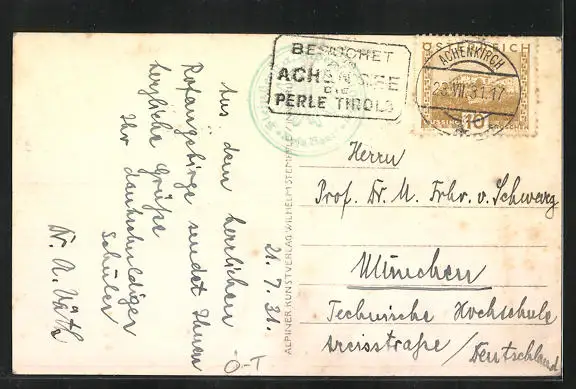 BESUCHET
ACHENSEE
DIE
PERLE TIROLS
ÖSTERREICH
ACHENKIRCH
23.VII.31.17
10
GROSCHEN
Aus dem herrlichen
Rofangebirge sendet Ihnen
herzliche Grüße
Ihr dankschuldiger
Schüler
Dr. A. Väth
21.7.31.
Ö-T
ALPINER KUNSTVERLAG WILHELM STEMPFLE
Herrn
Prof. Dr. M. Frhr. v. Schwarz
München
Technische Hochschule
Arcisstraße / Deutschland